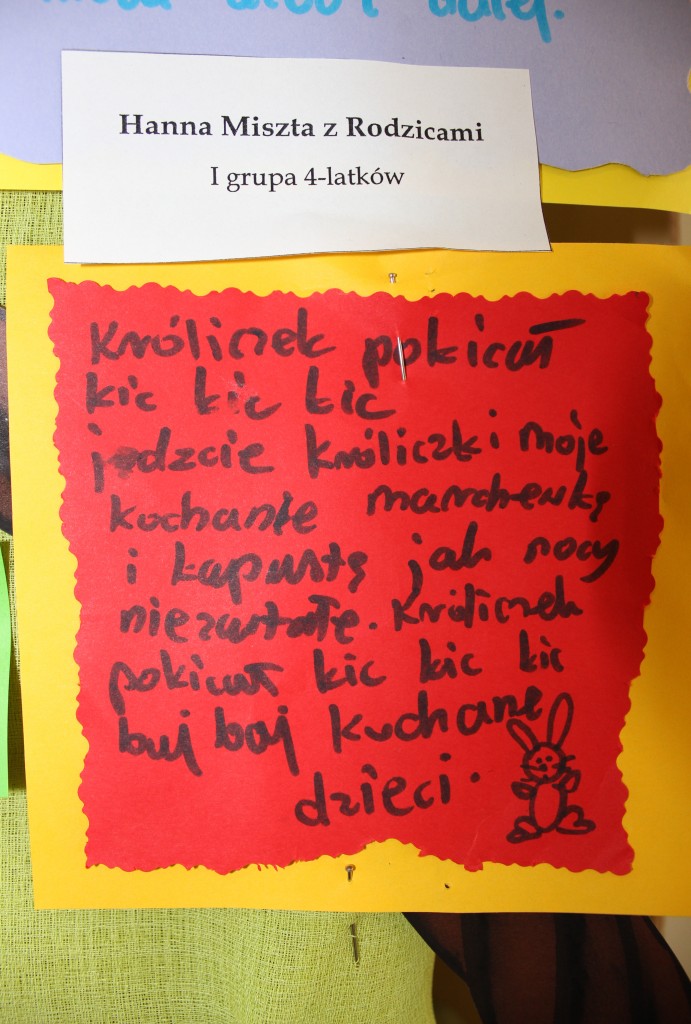 dalej.
Hanna Miszta z Rodzicami
I grupa 4-latków
Króliczek pokicał
kic kic kic
jedzcie króliczki moje
kochanie marchewkę
i kapustę jak nocy
Króliczek
pokicał kic kic kic
baj baj kochane
dzieci.